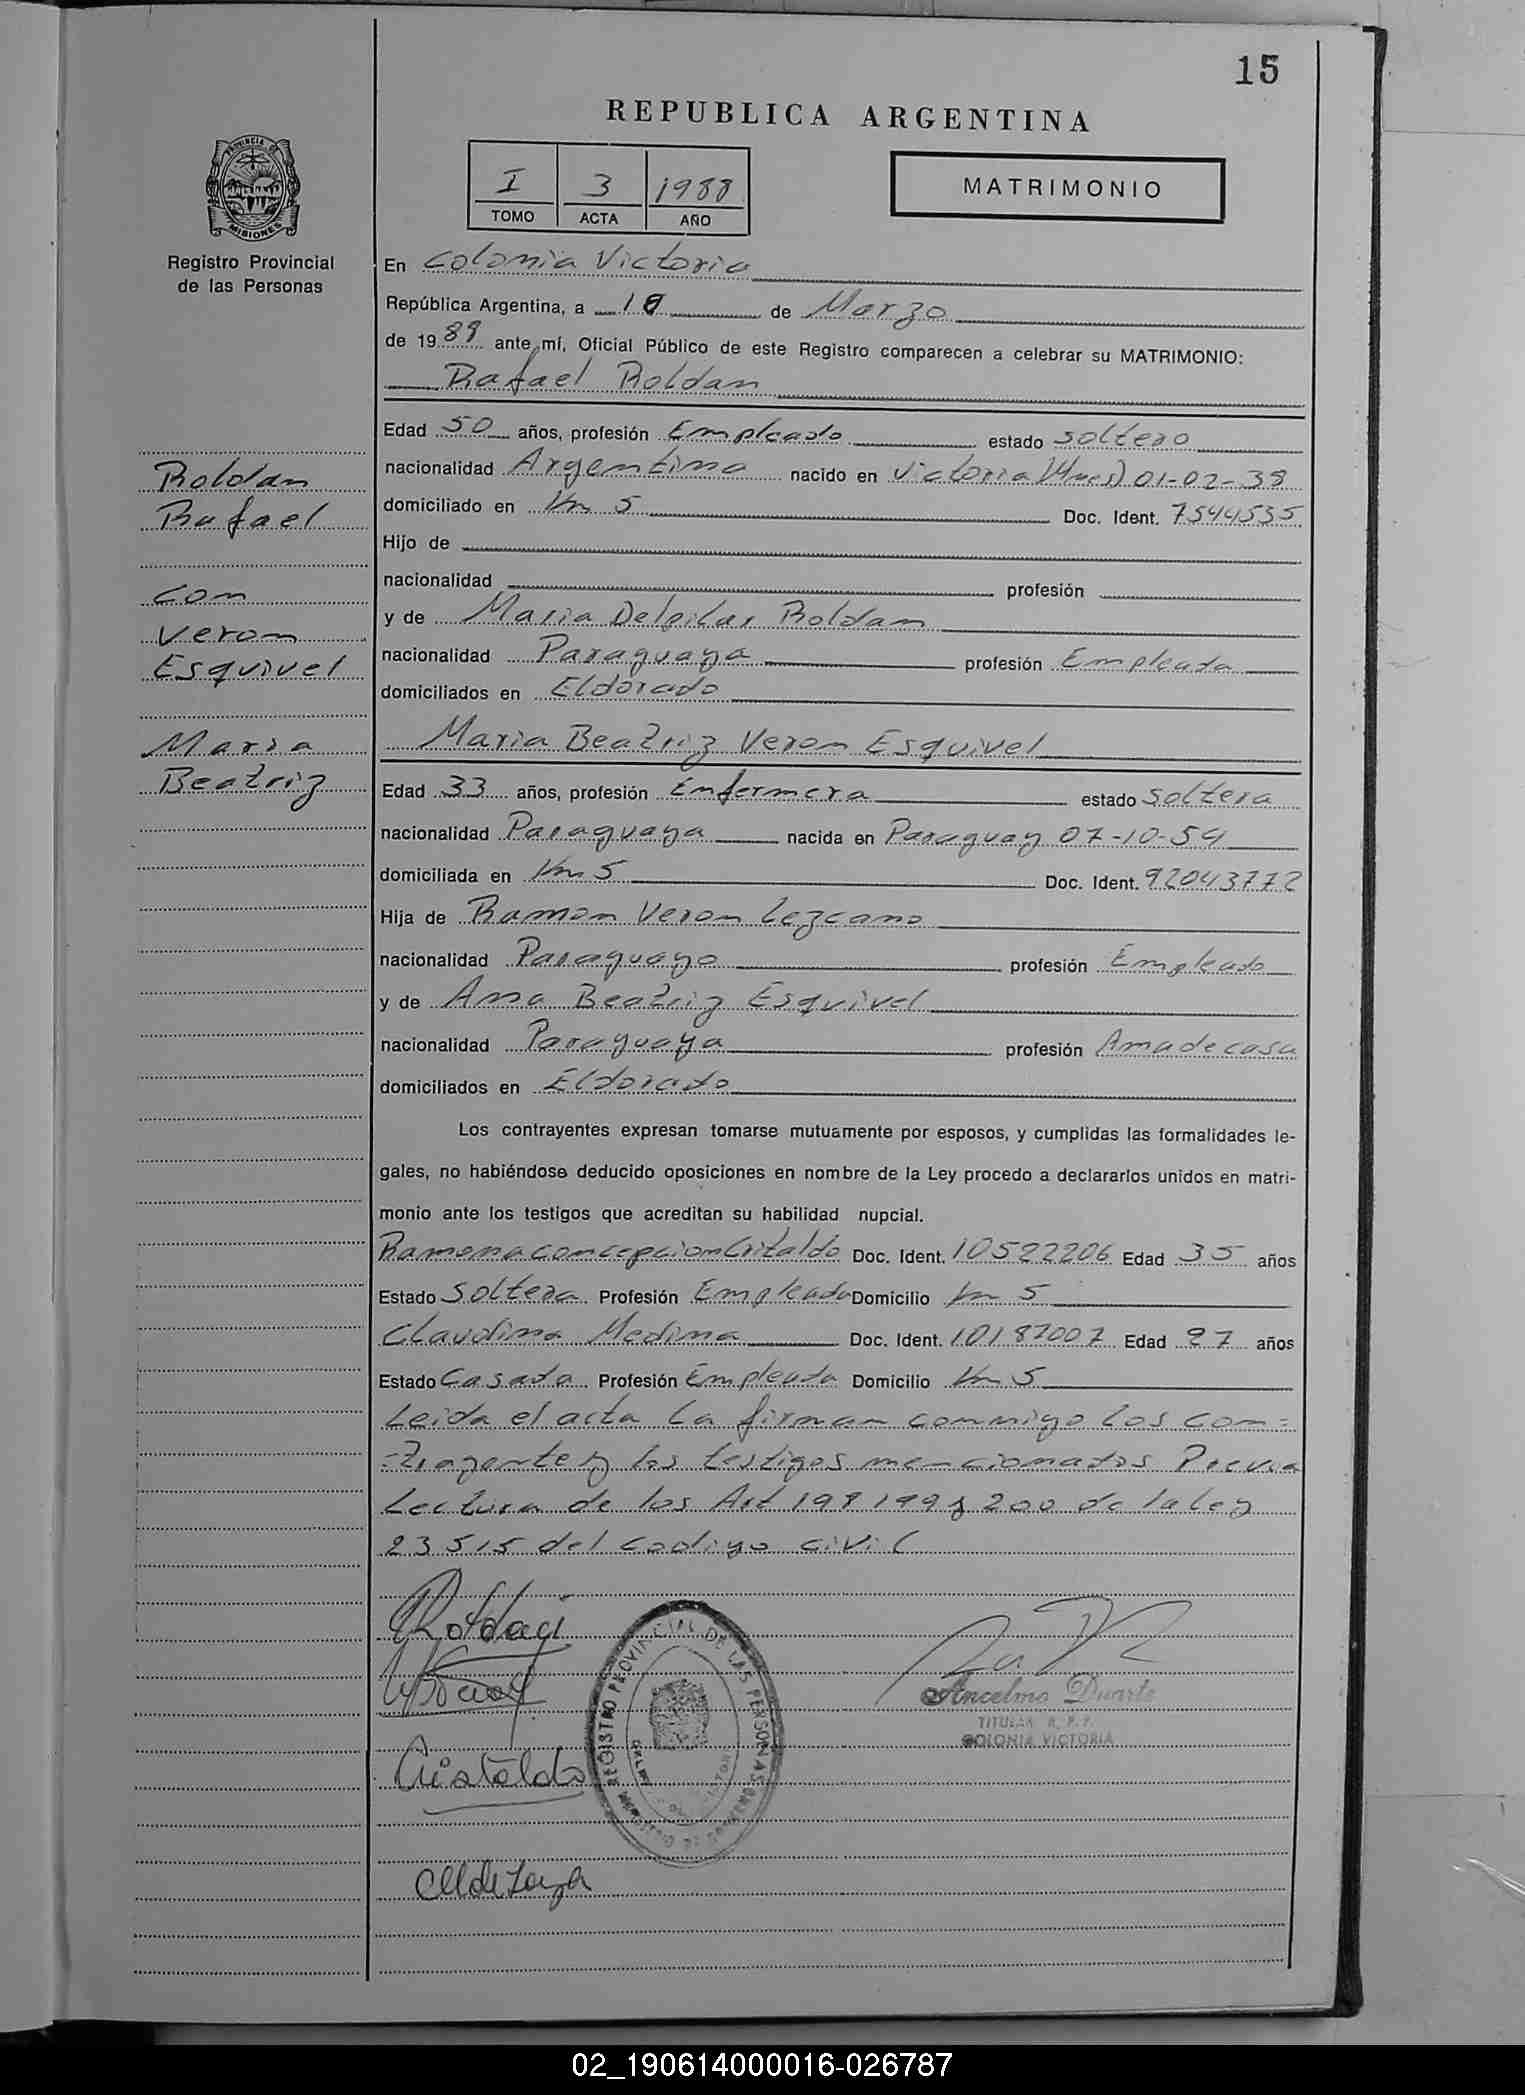 15
REPUBLICA ARGENTINA
PROVINCIA DE
MISIONES
Registro Provincial
de las Personas
I 3 1988
TOMO ACTA AÑO
MATRIMONIO
En Colonia Victoria
República Argentina, a 18 de Marzo
de 1988 ante mí, Oficial Público de este Registro comparecen a celebrar su MATRIMONIO:
Rafael Roldan
Edad 50 años, profesión Empleado estado soltero
nacionalidad Argentina nacido en Victoria (Mnes) 01-02-38
domiciliado en Km 5 Doc. Ident. 7544535
Hijo de
nacionalidad profesión
y de Maria Delpilar Roldan
nacionalidad Paraguaya profesión Empleada
domiciliados en Eldorado
Maria Beatriz Veron Esquivel
Edad 33 años, profesión Enfermera estado soltera
nacionalidad Paraguaya nacida en Paraguay 07-10-54
domiciliada en Km 5 Doc. Ident. 92043772
Hija de Ramon Veron Lezcano
nacionalidad Paraguayo profesión Empleado
y de Ana Beatriz Esquivel
nacionalidad Paraguaya profesión Ama de casa
domiciliados en Eldorado
Roldan
Rafael
con
Veron
Esquivel
Maria
Beatriz
Los contrayentes expresan tomarse mutuamente por esposos, y cumplidas las formalidades le-
gales, no habiéndose deducido oposiciones en nombre de la Ley procedo a declararlos unidos en matri-
monio ante los testigos que acreditan su habilidad nupcial.
Ramona concepcion Cristaldo Doc. Ident. 10522206 Edad 35 años
Estado Soltera Profesión Empleada Domicilio Km 5
Claudina Medina Doc. Ident. 10187007 Edad 27 años
Estado Casada Profesión Empleada Domicilio Km 5
Leida el acta la firman conmigo los con=
=trayentes y los testigos mencionados Previa
Lectura de los Art 198 199 y 200 de la ley
23515 del codigo civil
Roldan
Cristaldo
CM de Loza
REGISTRO PROVINCIAL DE LAS PERSONAS
Ancelmo Duarte
TITULAR R. P. P.
COLONIA VICTORIA
02_190614000016-026787